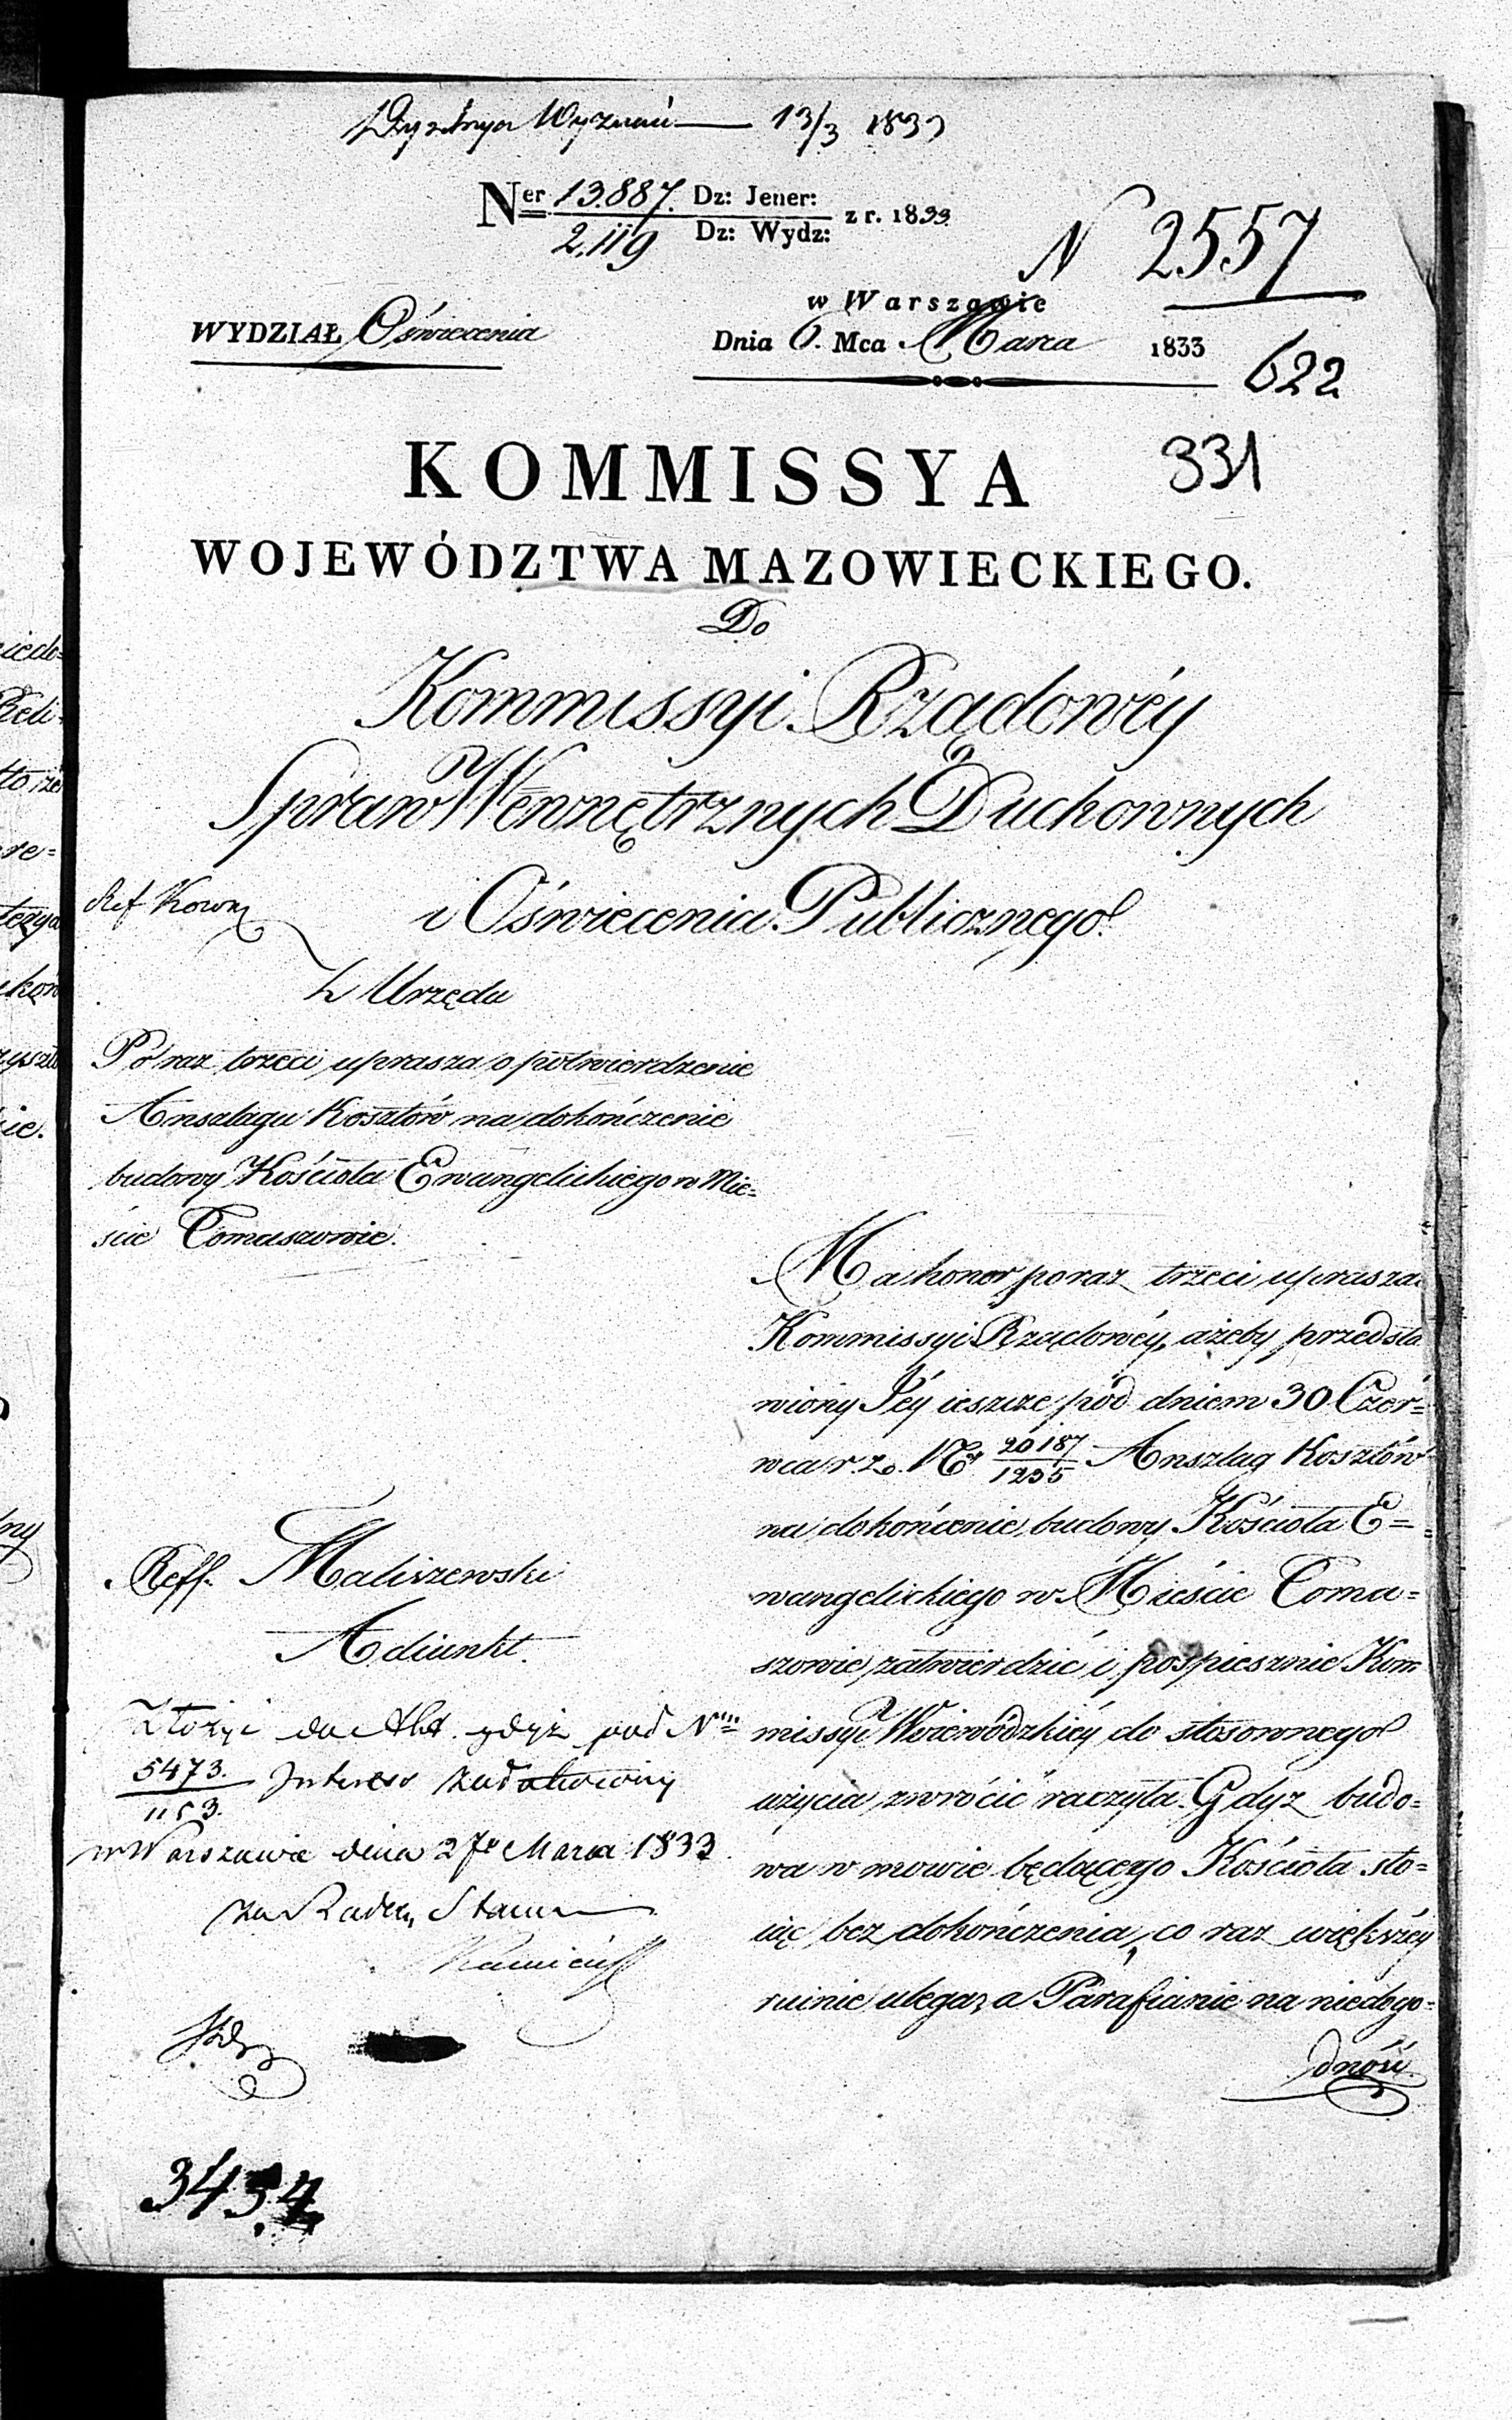 Dyrekcya Wyznań — 13/3 1833
Ner 13.887. Dz: Jener: z r. 1833
2.119 Dz: Wydz:
N 2557
w Warszawie
WYDZIAŁ Oświecenia
Dnia 6. Mca Marca 1833
622
KOMMISSYA
331
WOJEWÓDZTWA MAZOWIECKIEGO.
Do
Kommissyi Rządowéy
Spraw Wewnętrznych Duchownych
i Oświecenia Publicznego
Ref
Z Urzędu
Po raz trzeci uprasza o potwierdzenie
Anszlagu Kosztów na dokończenie
budowy Kościoła Ewangelickiego w Mie=
ście Tomaszowie.
Ma honor po raz trzeci upraszać
Kommissyi Rządowéy, ażeby przedsta
wiony Jéy ieszcze pod dniem 30 Czer=
wca r. z. Ner 20187/1235 Anszlag Kosztów
na dokończenie budowy Kościoła E=
wangelickiego w Mieście Toma=
szowie, zatwierdzić i pospiesznie Kom
missyi Woiewódzkiéy do stosownego
użycia zwrócić raczyła. Gdyż budo=
wa w mowie będącego Kościoła sto=
iąc bez dokończenia, co raz większéy
ruinie ulega, a Parafianie na niedogo=
dność
Reff. Maliszewski
Adiunkt.
Złożyć do Akt. gdyż pod Nrm
5473./1153. Interess załatwiony
w Warszawie dnia 27 Marca 1833
za Radcę Stanu
3434